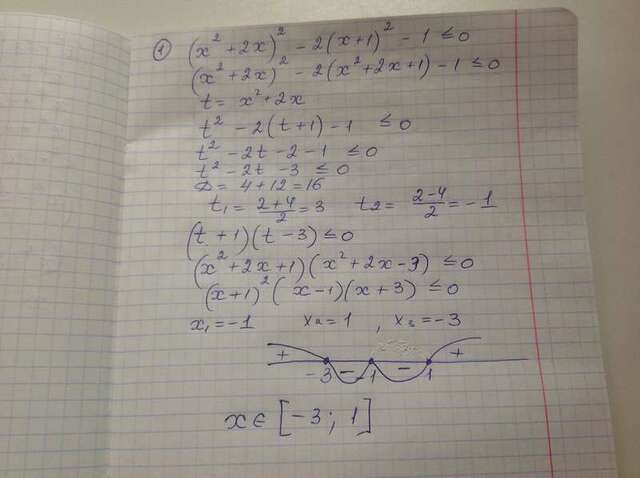 ① (x² + 2x)² - 2(x+1)² - 1 ≤ 0
(x² + 2x)² - 2(x² + 2x + 1) - 1 ≤ 0
t = x² + 2x
t² - 2(t+1) - 1 ≤ 0
t² - 2t - 2 - 1 ≤ 0
t² - 2t - 3 ≤ 0
D = 4 + 12 = 16
t₁ = (2+4)/2 = 3 t₂ = (2-4)/2 = -1
(t + 1)(t - 3) ≤ 0
(x² + 2x + 1)(x² + 2x - 3) ≤ 0
(x+1)² (x-1)(x+3) ≤ 0
x₁ = -1 x₂ = 1 , x₃ = -3
+ - - +
-3 -1 1
x ∈ [-3; 1]